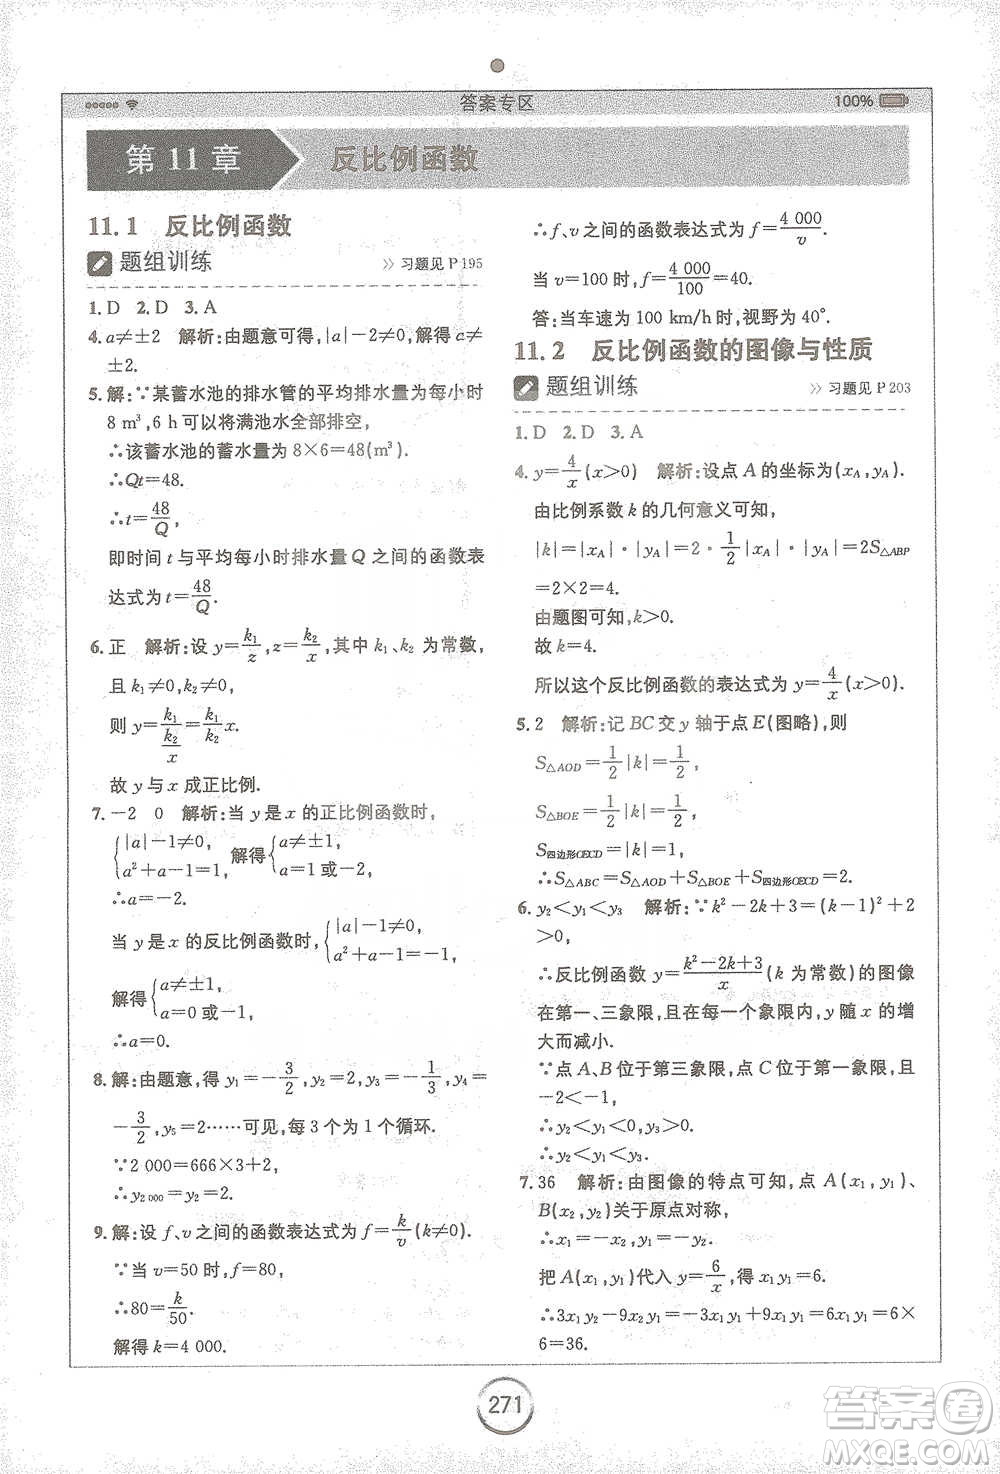 答案专区
100%
第 11 章
反比例函数
11.1 反比例函数
题组训练
>> 习题见 P 195
1. D 2. D 3. A
4. a≠±2 解析:由题意可得,|a|-2≠0,解得 a≠
±2.
5. 解:∵某蓄水池的排水管的平均排水量为每小时
8 m³,6 h 可以将满池水全部排空,
∴该蓄水池的蓄水量为 8×6=48(m³).
∴Qt=48.
∴t=48/Q,
即时间 t 与平均每小时排水量 Q 之间的函数表
达式为 t=48/Q.
6. 正 解析:设 y=k₁/z,z=k₂/x,其中 k₁、k₂ 为常数,
且 k₁≠0,k₂≠0,
则 y=k₁/(k₂/x)=(k₁/k₂)x.
故 y 与 x 成正比例.
7. -2 0 解析:当 y 是 x 的正比例函数时,
{|a|-1≠0, a²+a-1=1, 解得{a≠±1, a=1 或-2.
∴a=-2.
当 y 是 x 的反比例函数时,{|a|-1≠0, a²+a-1=-1,
解得{a≠±1, a=0 或-1.
∴a=0.
8. 解:由题意,得 y₁=-3/2,y₂=2,y₃=-1/3,y₄=
-3/2,y₅=2……可见,每 3 个为 1 个循环.
∵2 000=666×3+2,
∴y₂ ₀₀₀=y₂=2.
9. 解:设 f、v 之间的函数表达式为 f=k/v(k≠0).
∵当 v=50 时,f=80,
∴80=k/50.
解得 k=4 000.
∴f、v 之间的函数表达式为 f=4 000/v.
当 v=100 时,f=4 000/100=40.
答:当车速为 100 km/h 时,视野为 40°.
11.2 反比例函数的图像与性质
题组训练
>> 习题见 P 203
1. D 2. D 3. A
4. y=4/x(x>0) 解析:设点 A 的坐标为(x_A,y_A),
由比例系数 k 的几何意义可知,
|k|=|x_A|·|y_A|=2·1/2|x_A|·|y_A|=2S△ABP
=2×2=4.
由题图可知,k>0.
故 k=4.
所以这个反比例函数的表达式为 y=4/x(x>0).
5. 2 解析:记 BC 交 y 轴于点 E(图略),则
S△AOD=1/2|k|=1/2,
S△BOE=1/2|k|=1/2,
S四边形OECD=|k|=1,
∴S△ABC=S△AOD+S△BOE+S四边形OECD=2.
6. y₂<y₁<y₃ 解析:∵k²-2k+3=(k-1)²+2
>0,
∴反比例函数 y=(k²-2k+3)/x(k 为常数)的图像
在第一、三象限,且在每个象限内,y 随 x 的增
大而减小.
∵点 A、B 位于第三象限,点 C 位于第一象限,且
-2<-1,
∴y₂<y₁<0,y₃>0.
∴y₂<y₁<y₃.
7. 36 解析:由图像的特点可知,点 A(x₁,y₁)、
B(x₂,y₂)关于原点对称,
∴x₁=-x₂,y₁=-y₂.
把 A(x₁,y₁)代入 y=6/x,得 x₁y₁=6.
∴3x₁y₂-9x₂y₁=-3x₁y₁+9x₁y₁=6x₁y₁=6×
6=36.
271
答案圈
MXQE.COM